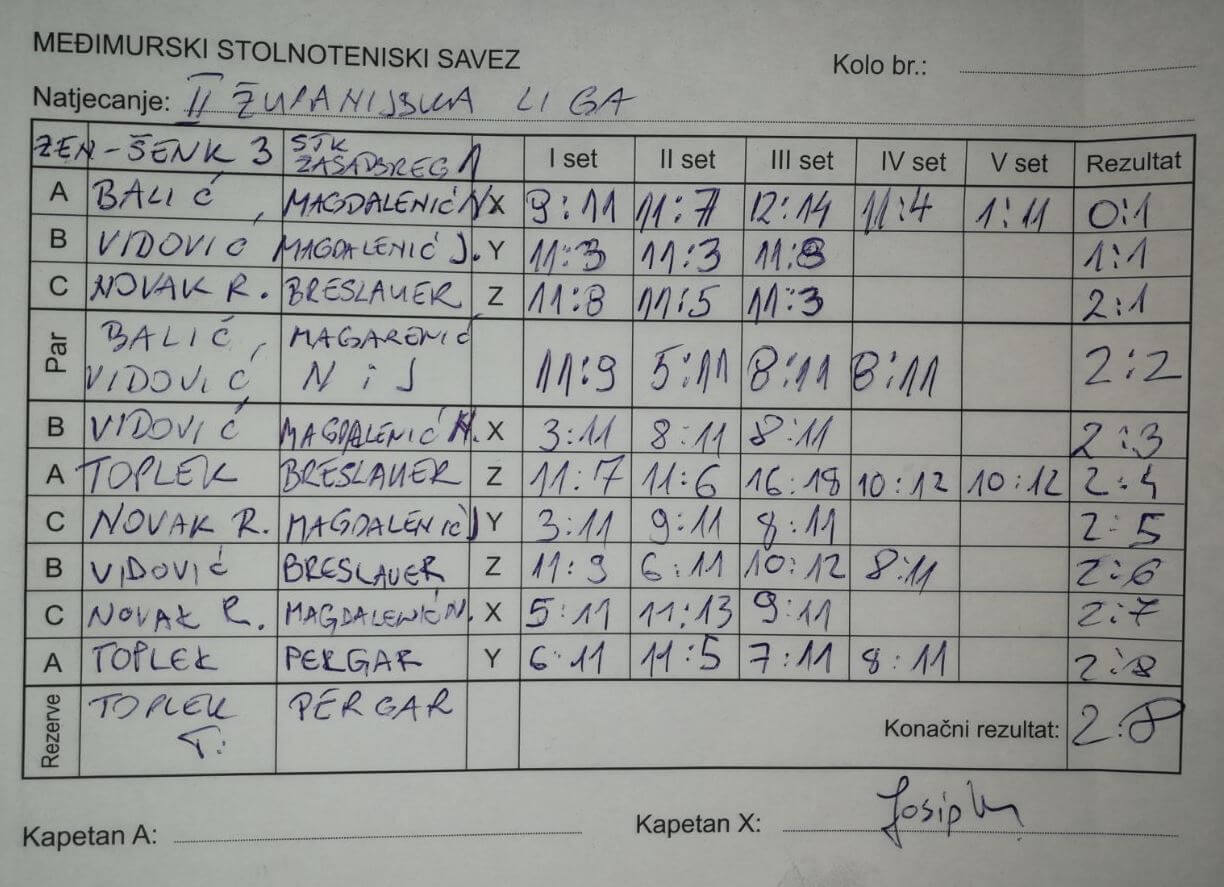 MEĐIMURSKI STOLNOTENISKI SAVEZ
Kolo br.:
Natjecanje: II ŽUPANIJSKA LIGA
ŽEN-ŠENK 3 STK ZASADBREG 1 I set II set III set IV set V set Rezultat
A BALIĆ, MAGDALENIĆ N X 9:11 11:7 12:14 11:4 1:11 0:1
B VIDOVIĆ MAGDALENIĆ J. Y 11:3 11:3 11:8 1:1
C NOVAK R. BRESLAUER Z 11:8 11:5 11:3 2:1
Par BALIĆ, MAGARENIĆ
VIDOVIĆ N i J 11:9 5:11 8:11 8:11 2:2
B VIDOVIĆ MAGDALENIĆ N. X 3:11 8:11 8:11 2:3
A TOPLEK BRESLAUER Z 11:7 11:6 16:18 10:12 10:12 2:4
C NOVAK R. MAGDALENIĆ J Y 3:11 9:11 8:11 2:5
B VIDOVIĆ BRESLAUER Z 11:9 6:11 10:12 8:11 2:6
C NOVAK R. MAGDALENIĆ N. X 5:11 11:13 9:11 2:7
A TOPLEK PERGAR Y 6:11 11:5 7:11 8:11 2:8
Rezerve TOPLEK PERGAR
T.
Konačni rezultat: 2:8
Kapetan A:
Kapetan X: Josip